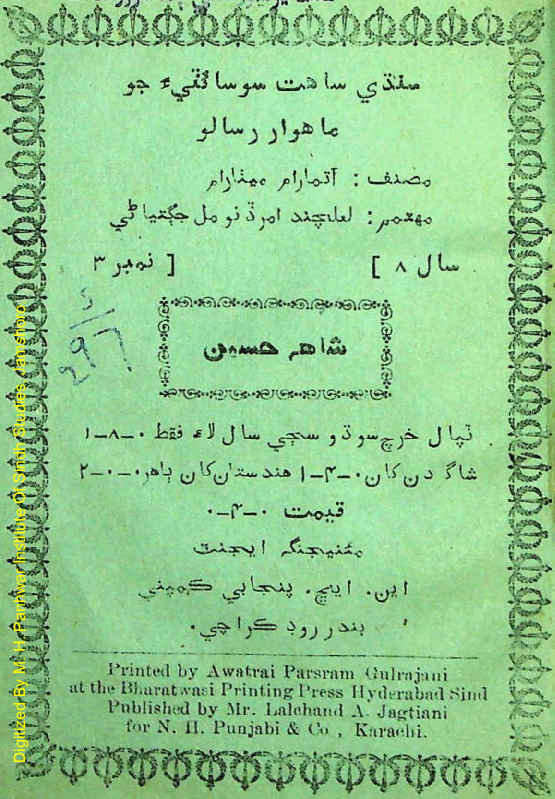 سنڌي ساهت سوسائٽيءَ جو
ماهوار رسالو
مصنف: آتمارام ميٺارام
مهتمم: لعلچند امرڏنو مل جڳتياڻي
سال ٨ ]
[ نمبر ٣
5
297
شاهه حسين
ٽپال خرچ سوڌو سڄي سال لاءِ فقط ٠–٨–١
شاگردن کان ٠–٤–١ هندستان کان ٻاهر ٠–٠–٢
قيمت ٠–٤–٠
مئنيجنگ ايجنٽ
اين. ايڇ. پنجابي ڪمپني
بندر روڊ ڪراچي.
Printed by Awatrai Parsram Gulrajani
at the Bharatwasi Printing Press Hyderabad Sind
Published by Mr. Lalchand A. Jagtiani
for N. H. Punjabi & Co , Karachi.
Digitized By M. H. Panhwar Institute Of Sindhi Studies, Jamshoro.